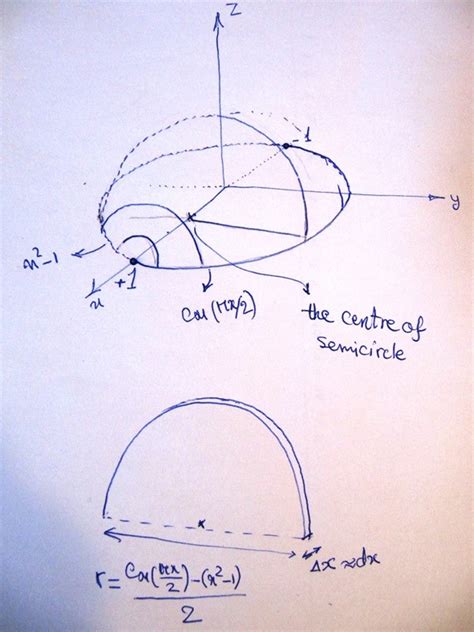 z
-1
y
x²-1
+1
x
Cos(πx/2)
the centre of
semicircle
x
r = Cos(πx/2)-(x²-1)
2
Δx≈dx